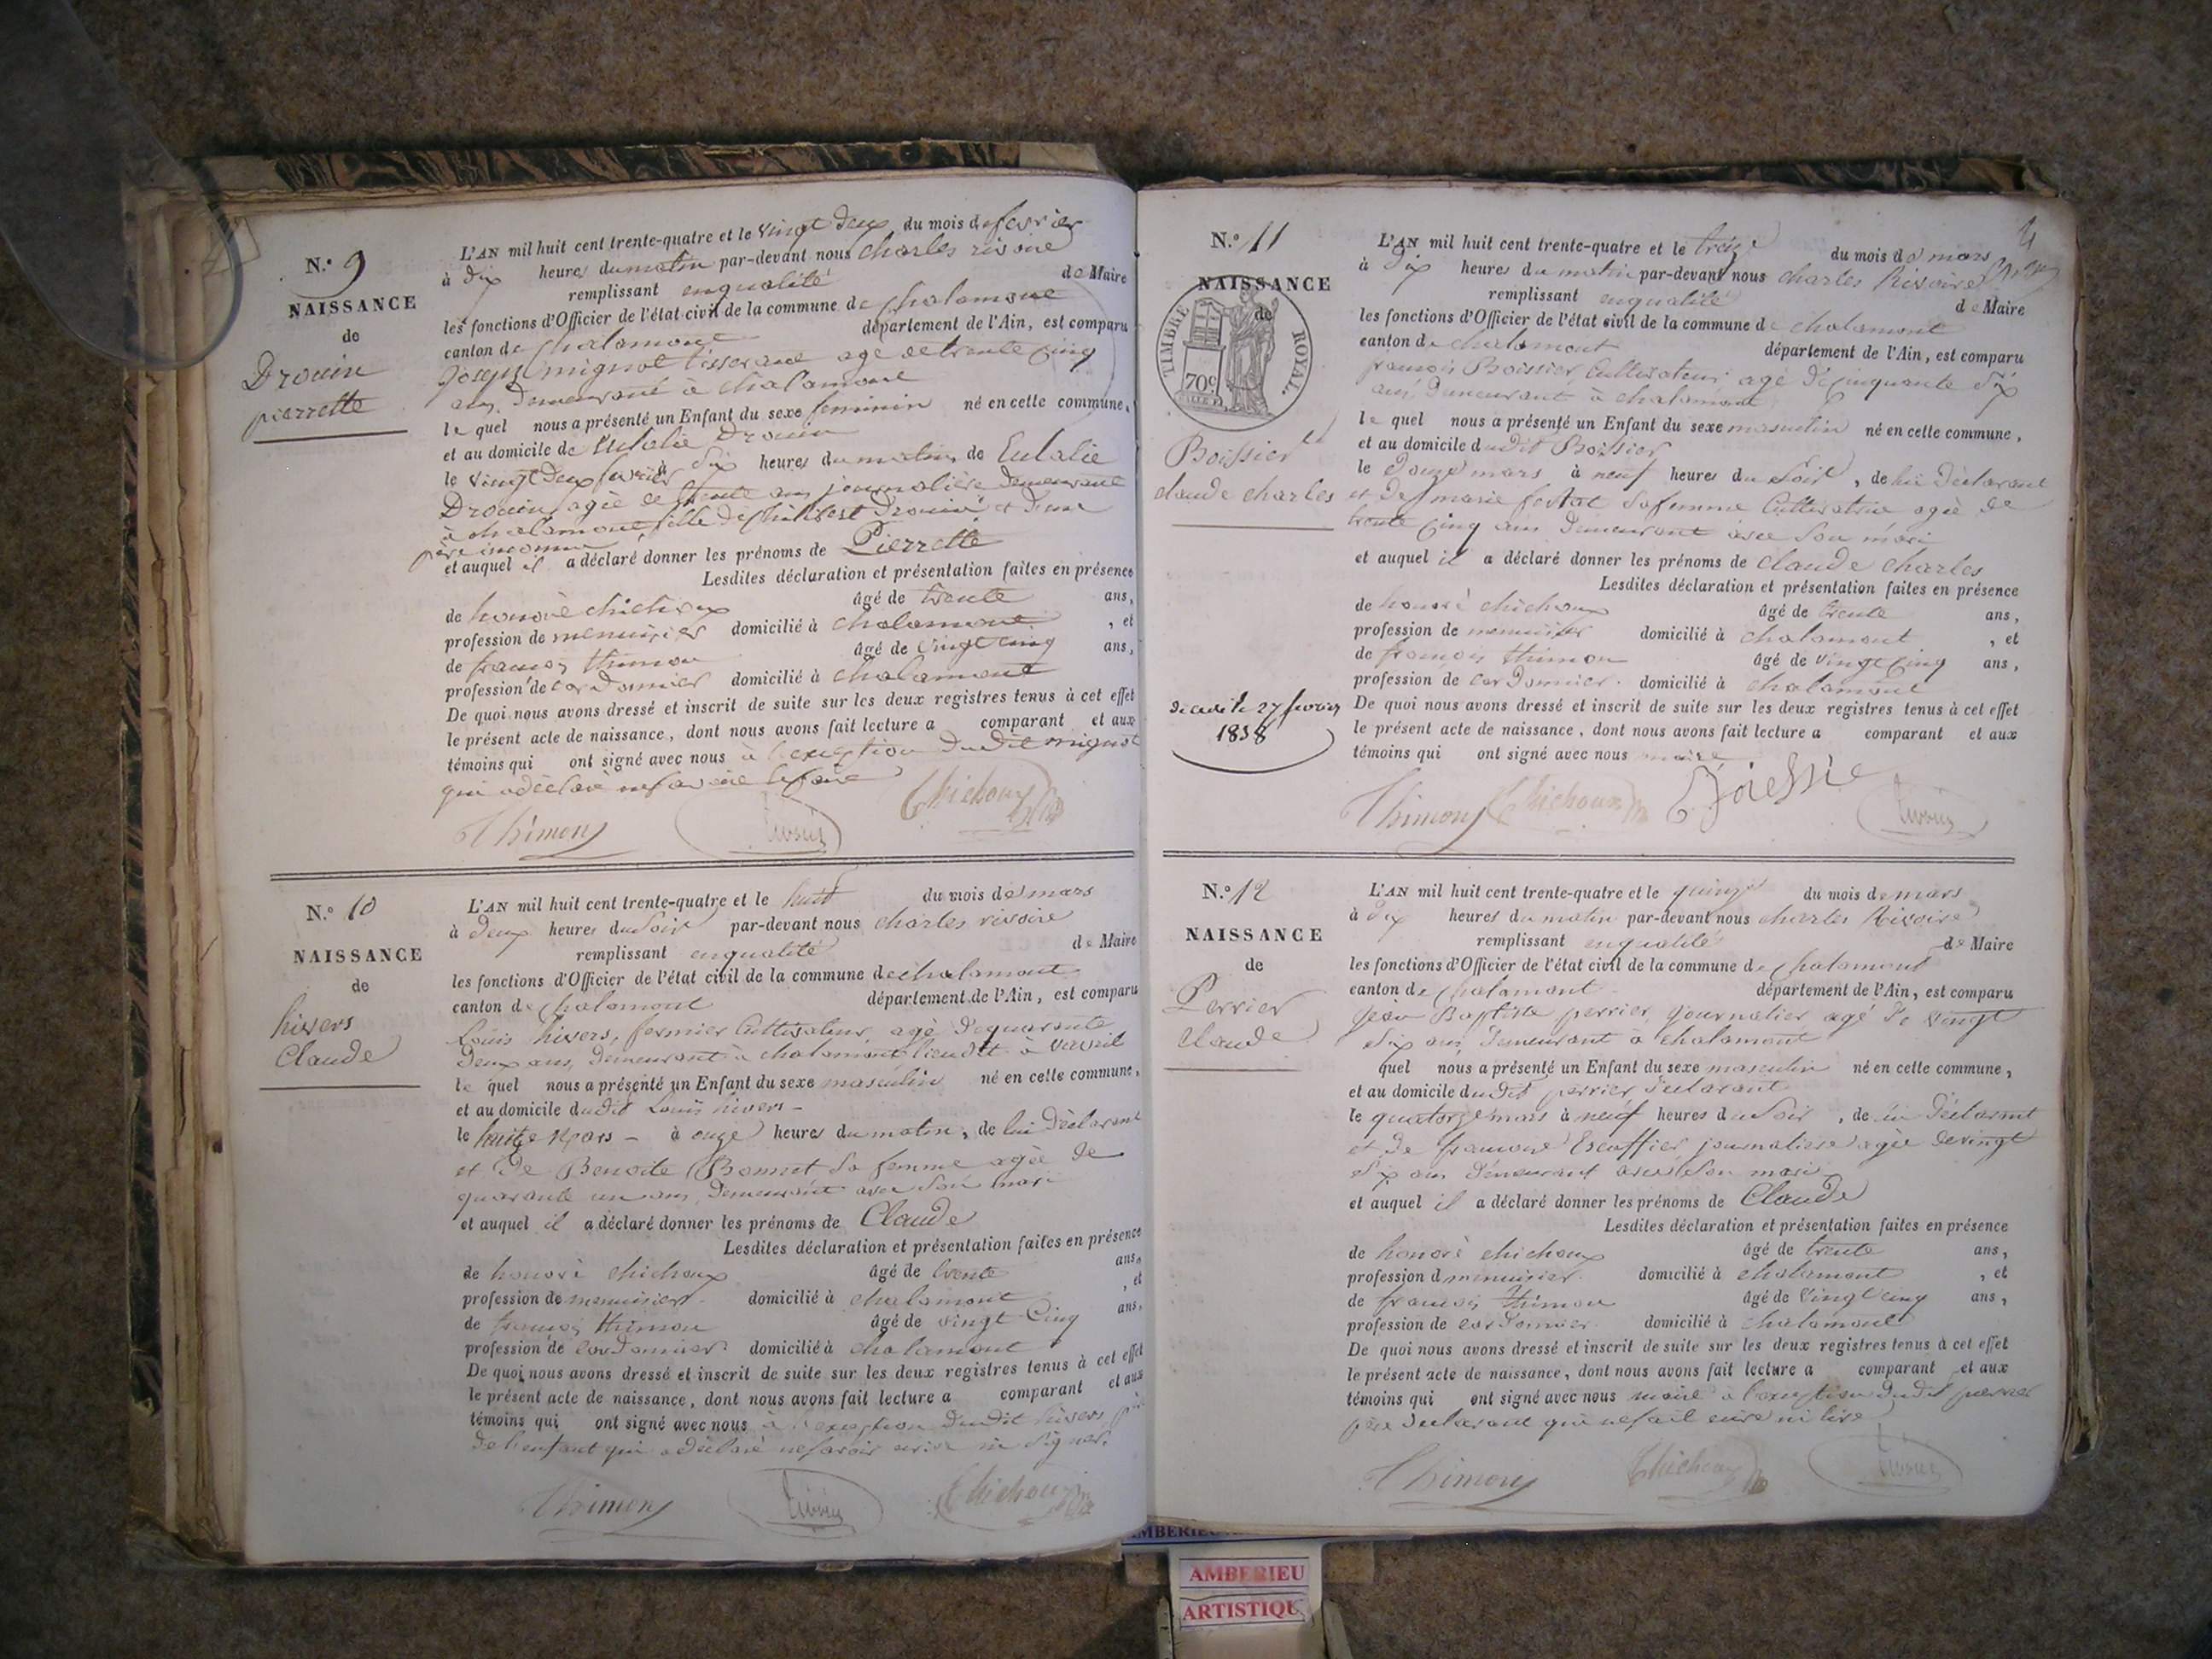 N.o 9
NAISSANCE
de
Drouin
pierrette
L'AN mil huit cent trente-quatre et le vingt deux du mois de fevrier
à dix heures du matin par-devant nous charles rivoire
remplissant en qualité de Maire
les fonctions d'Officier de l'état civil de la commune de chalamont
canton de chalamont département de l'Ain, est comparu
Joseph mignot tisserand agé de trente cinq
ans, demeurant à chalamont
le quel nous a présenté un Enfant du sexe feminin né en cette commune,
et au domicile de Eulalie Drouin
le vingt deux fevrier à dix heures du matin, de Eulalie
Drouin, agée de trente ans journalière demeurant
à chalamont, fille de philibert Drouin et d'une
père inconnu
et auquel il a déclaré donner les prénoms de Pierrette
Lesdites déclaration et présentation faites en présence
de honoré chichoux âgé de trente ans,
profession de menuisier domicilié à chalamont, et
de françois thimon âgé de vingt cinq ans,
profession de cordonnier domicilié à chalamont
De quoi nous avons dressé et inscrit de suite sur les deux registres tenus à cet effet
le présent acte de naissance, dont nous avons fait lecture a comparant et aux
témoins qui ont signé avec nous à l'exception dudit mignot
qui a déclaré ne savoir le faire
Thimon Chichoux
N.o 10
NAISSANCE
de
hivers
Claude
L'AN mil huit cent trente-quatre et le huit du mois de mars
à deux heures du soir par-devant nous charles rivoire
remplissant en qualité de Maire
les fonctions d'Officier de l'état civil de la commune de chalamont
canton de chalamont département de l'Ain, est comparu
Louis hivers, fermier Cultivateur, agé de quarante
deux ans, demeurant à chalamont lieu dit à
le quel nous a présenté un Enfant du sexe masculin né en cette commune,
et au domicile dudit Louis hivers
le huit mars à onze heures du matin, de lui déclarant
et de Benoite Bonnet sa femme agée de
quarante un ans, demeurant avec son mari
et auquel il a déclaré donner les prénoms de Claude
Lesdites déclaration et présentation faites en présence
de honoré chichoux âgé de trente ans,
profession de menuisier domicilié à chalamont, et
de françois thimon âgé de vingt Cinq ans,
profession de cordonnier domicilié à chalamont
De quoi nous avons dressé et inscrit de suite sur les deux registres tenus à cet effet
le présent acte de naissance, dont nous avons fait lecture a comparant et aux
témoins qui ont signé avec nous à l'exception dudit hivers père
de l'enfant qui a déclaré ne savoir écrire ni signer.
Thimon Chichoux
4
N.o 11
NAISSANCE
de
TIMBRE ROYAL.
70c
Boissier
claude charles
décédé le 27 février
1838
L'AN mil huit cent trente-quatre et le treize du mois de mars
à dix heures du matin par-devant nous charles Rivoire
remplissant en qualité de Maire
les fonctions d'Officier de l'état civil de la commune de chalamont
canton de chalamont département de l'Ain, est comparu
françois Boissier, Cultivateur, agé de cinquante six
ans, demeurant à chalamont
le quel nous a présenté un Enfant du sexe masculin né en cette commune,
et au domicile dudit Boissier
le douze mars à neuf heures du soir, de lui déclarant
et de marie sa femme Cultivatrice agée de
trente cinq ans demeurant avec son mari
et auquel il a déclaré donner les prénoms de claude charles
Lesdites déclaration et présentation faites en présence
de honoré chichoux âgé de trente ans,
profession de menuisier domicilié à chalamont, et
de françois thimon âgé de vingt cinq ans,
profession de cordonnier domicilié à chalamont
De quoi nous avons dressé et inscrit de suite sur les deux registres tenus à cet effet
le présent acte de naissance, dont nous avons fait lecture a comparant et aux
témoins qui ont signé avec nous maire
Thimon Chichoux
N.o 12
NAISSANCE
de
Perrier
Claude
L'AN mil huit cent trente-quatre et le quinze du mois de mars
à dix heures du matin par-devant nous charles Rivoire
remplissant en qualité de Maire
les fonctions d'Officier de l'état civil de la commune de chalamont
canton de chalamont département de l'Ain, est comparu
jean Baptiste perrier, journalier agé de vingt
six ans, demeurant à chalamont
quel nous a présenté un Enfant du sexe masculin né en cette commune,
et au domicile dudit perrier déclarant
le quatorze mars à neuf heures du soir, de lui déclarant
et de françoise Escoffier journaliere agée de vingt
six ans demeurant avec son mari
et auquel il a déclaré donner les prénoms de Claude
Lesdites déclaration et présentation faites en présence
de honoré chichoux âgé de trente ans,
profession d menuisier domicilié à chalamont, et
de françois thimon âgé de vingt cinq ans,
profession de cordonnier domicilié à chalamont
De quoi nous avons dressé et inscrit de suite sur les deux registres tenus à cet effet
le présent acte de naissance, dont nous avons fait lecture a comparant et aux
témoins qui ont signé avec nous maire à l'exception dudit perrier
père déclarant qui ne sait écrire ni lire
Thimon Chichoux
AMBERIEU
ARTISTIQUE